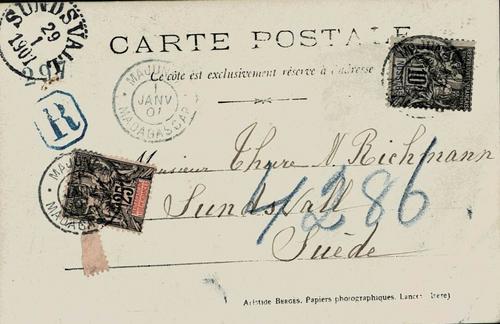 SUNDSVALL
29
1
1901
CARTE POSTALE
Ce côté est exclusivement réservé à l'adresse
MAJUNGA
1
JANV
01
MADAGASCAR
R
10
MAJUNGA
MADAGASCAR
25
Monsieur Thure N. Richmann
Sundsvall
Suède
286
Aristide BERGES, Papiers photographiques, Lancey (Isère)